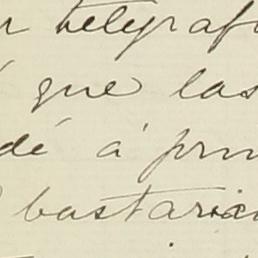 r telegrafi
é que las
dé á prin
bastaria